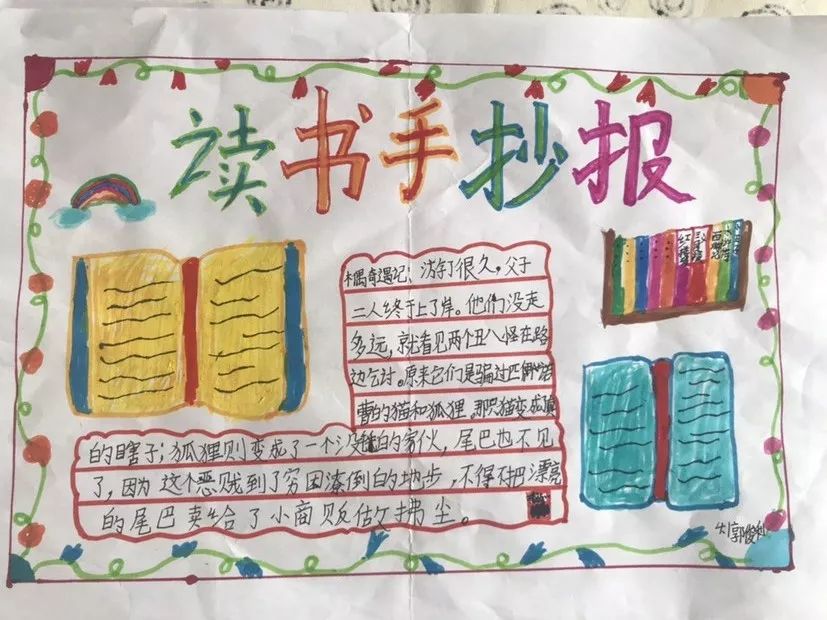 读书手抄报
木偶奇遇记:游了很久,父子
二人终于上了岸。他们没走
多远,就看见两个丑八怪在路
边乞讨。原来它们是骗过匹
曹的猫和狐狸。那只猫变成真
的瞎子;狐狸则变成了一个没的家伙,尾巴也不见
了,因为这个恶贼到了穷困潦倒的地步,不得不把漂亮
的尾巴卖给了小商贩做拂尘。